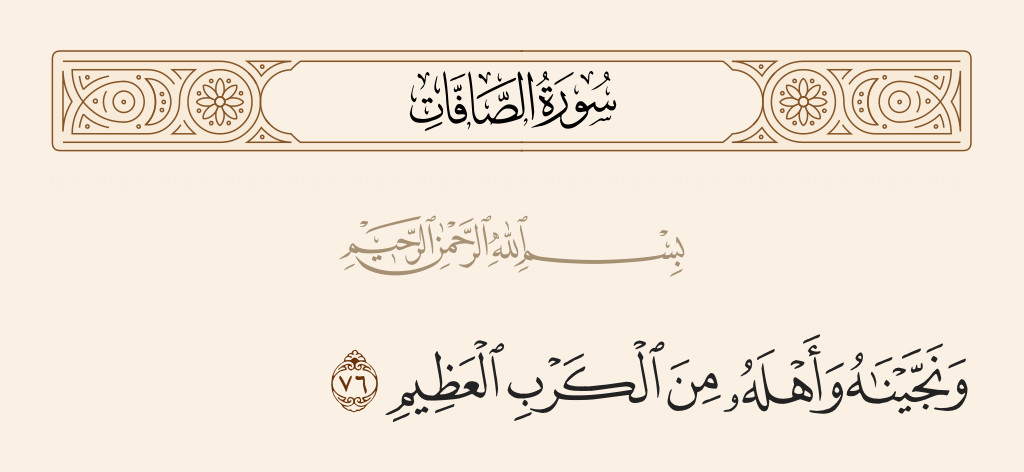 سُورَةُ الصَّافَّاتِ
بِسْمِ ٱللَّهِ ٱلرَّحْمَٰنِ ٱلرَّحِيمِ
وَنَجَّيْنَٰهُ وَأَهْلَهُۥ مِنَ ٱلْكَرْبِ ٱلْعَظِيمِ ٧٦